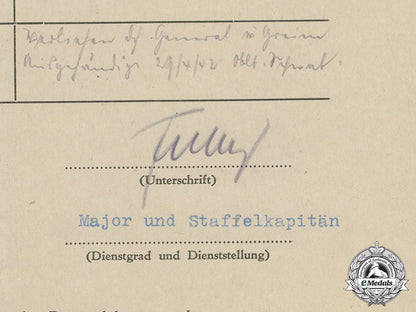 Verliehen d General v Greim
Ausgehändigt 29/4/42 Oblt.
(Unterschrift)
Major und Staffelkapitän
(Dienstgrad und Dienststellung)
eMedals